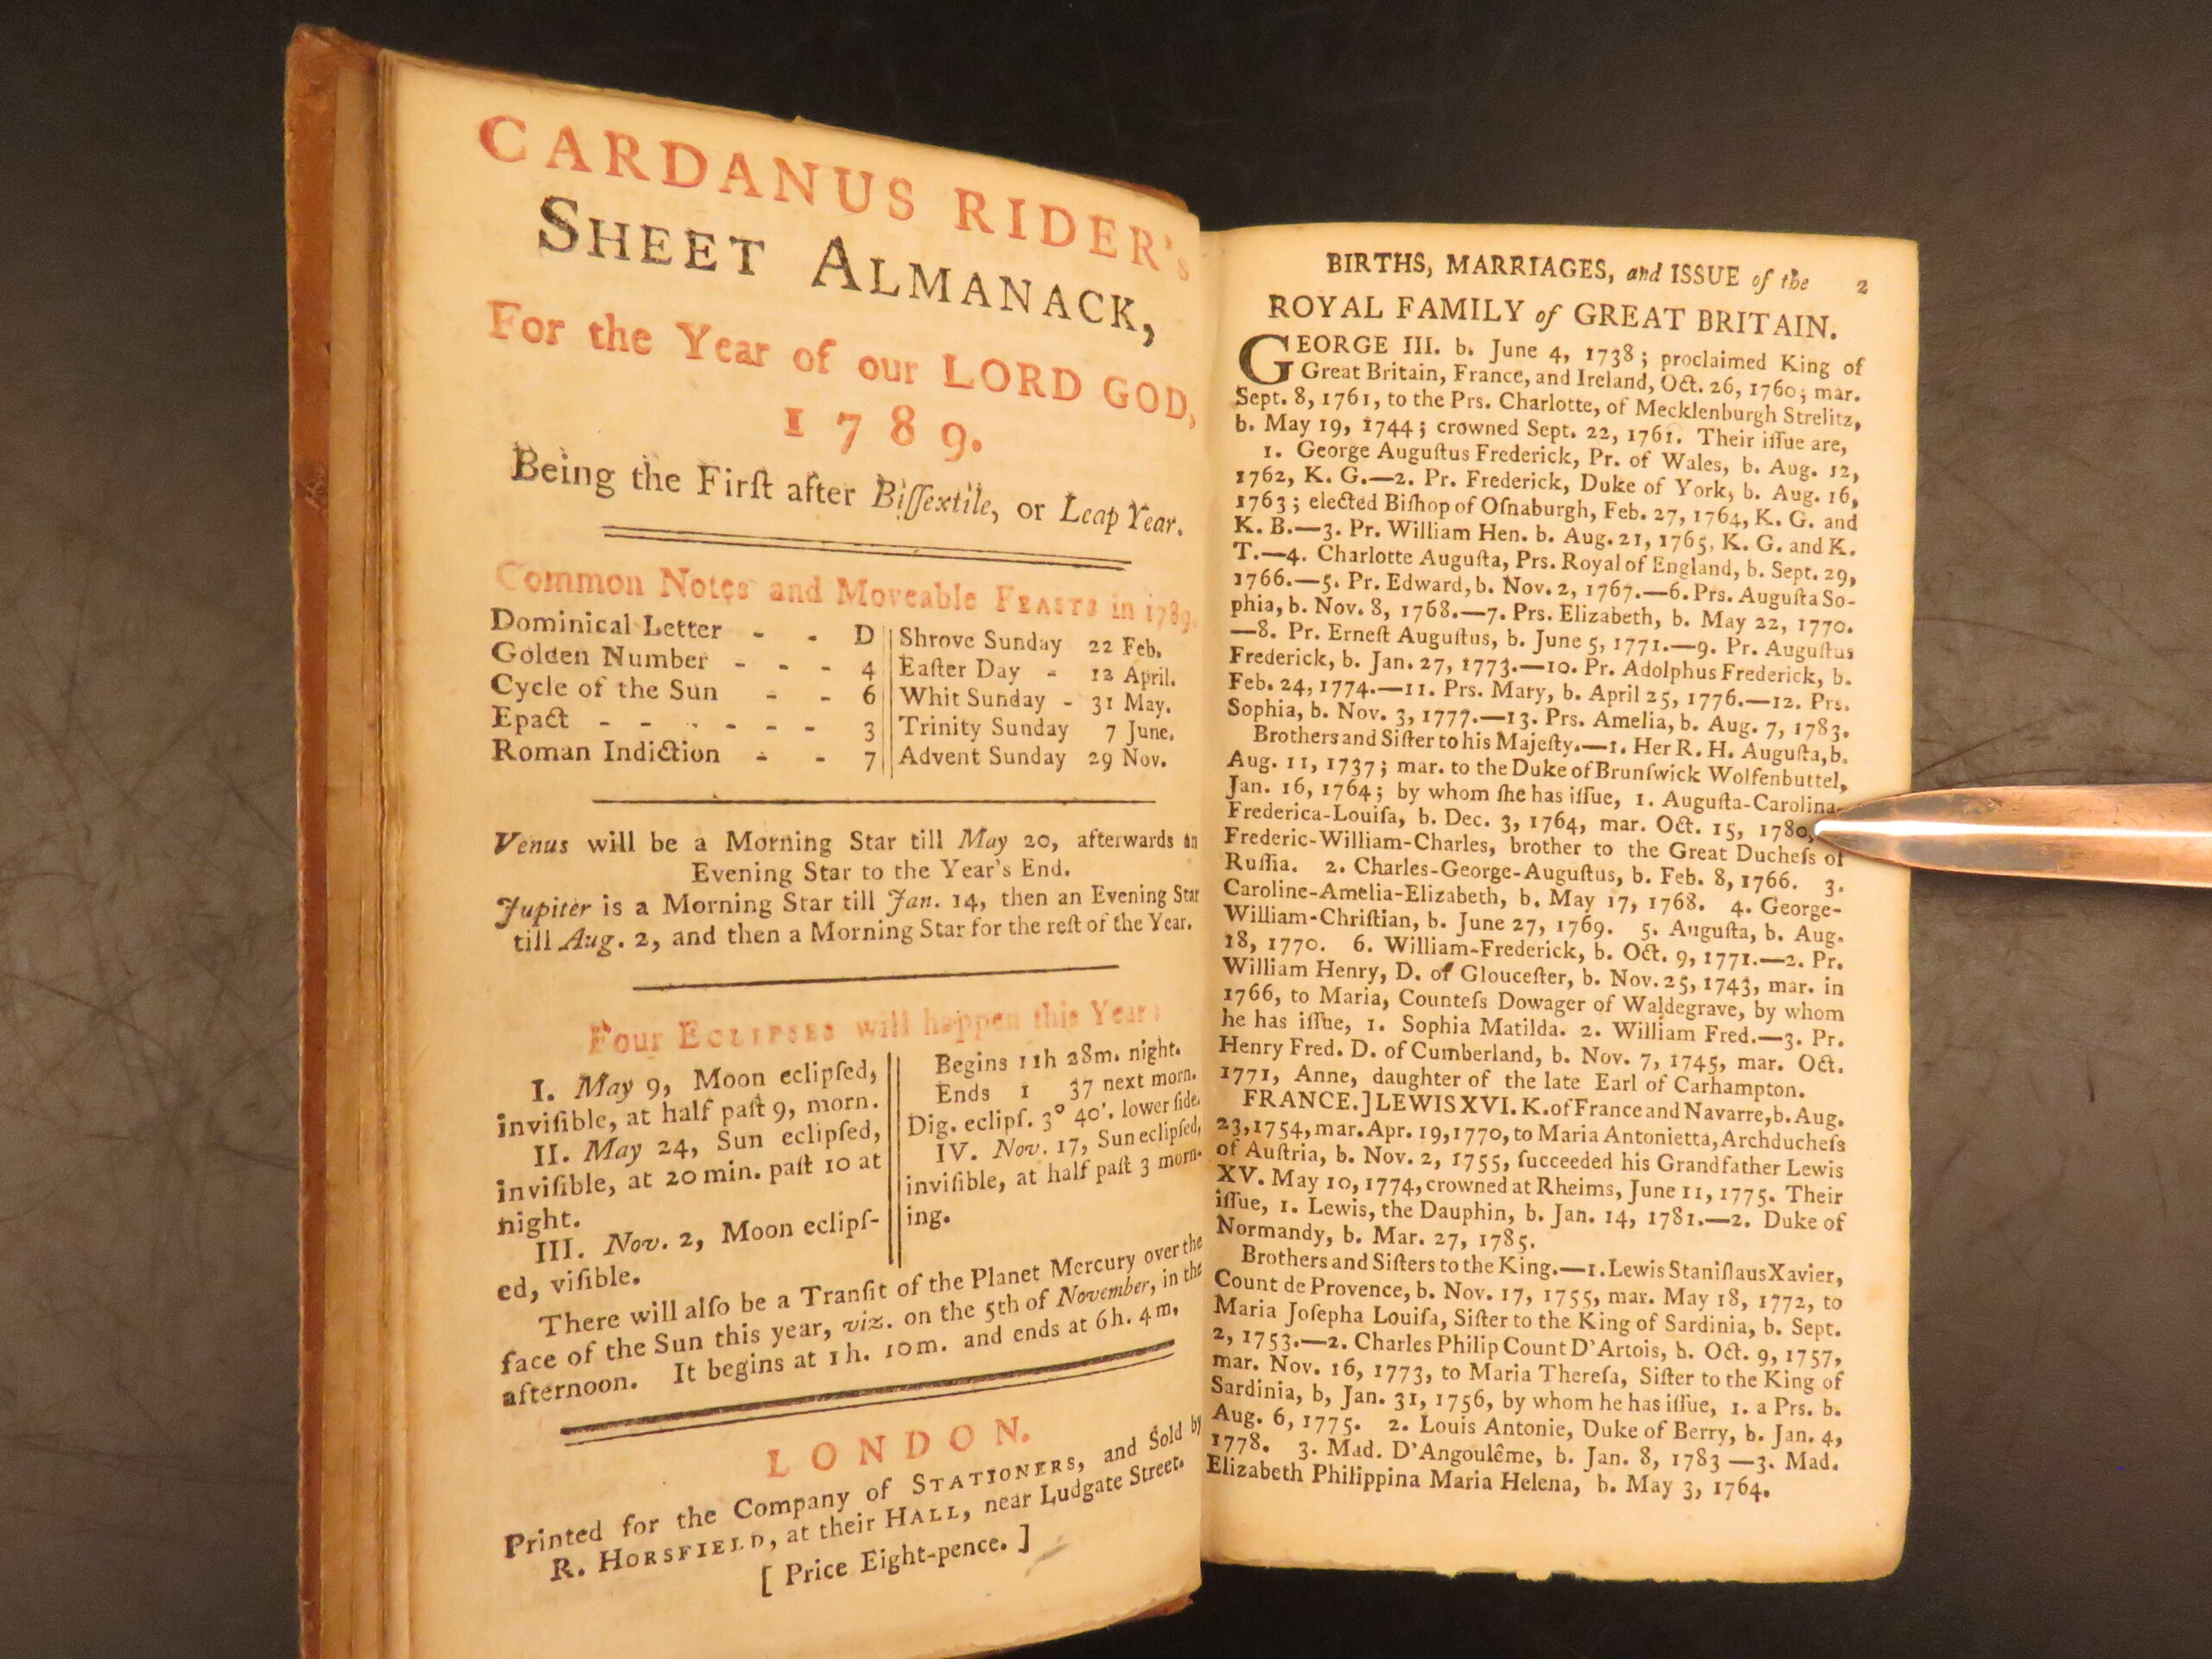 CARDANUS RIDER's
SHEET ALMANACK,
For the Year of our LORD GOD,
1789.
Being the Firſt after Biſſextile, or Leap Year.
Common Notes and Moveable FEASTS in 1789.
Dominical Letter - - D
Golden Number - - - 4
Cycle of the Sun - - 6
Epact - - - - - - 3
Roman Indiction - - 7
Shrove Sunday 22 Feb.
Eaſter Day - 12 April.
Whit Sunday - 31 May.
Trinity Sunday 7 June.
Advent Sunday 29 Nov.
Venus will be a Morning Star till May 20, afterwards an
Evening Star to the Year's End.
Jupiter is a Morning Star till Jan. 14, then an Evening Star
till Aug. 2, and then a Morning Star for the reſt of the Year.
Four ECLIPSES will happen this Year:
I. May 9, Moon eclipſed,
inviſible, at half paſt 9, morn.
II. May 24, Sun eclipſed,
inviſible, at 20 min. paſt 10 at
night.
III. Nov. 2, Moon eclipſ-
ed, viſible.
Begins 11h 28m. night.
Ends 1 37 next morn.
Dig. eclipſ. 3° 40'. lower ſide.
IV. Nov. 17, Sun eclipſed,
inviſible, at half paſt 3 morn-
ing.
There will alſo be a Tranſit of the Planet Mercury over the
face of the Sun this year, viz. on the 5th of November, in the
afternoon. It begins at 1h. 10m. and ends at 6h. 4m.
LONDON.
Printed for the Company of STATIONERS, and Sold by
R. HORSFIELD, at their HALL, near Ludgate Street.
[ Price Eight-pence. ]
BIRTHS, MARRIAGES, and ISSUE of the 2
ROYAL FAMILY of GREAT BRITAIN.
GEORGE III. b. June 4, 1738; proclaimed King of
Great Britain, France, and Ireland, Oct. 26, 1760; mar.
Sept. 8, 1761, to the Prs. Charlotte, of Mecklenburgh Strelitz,
b. May 19, 1744; crowned Sept. 22, 1761. Their iſſue are,
1. George Auguſtus Frederick, Pr. of Wales, b. Aug. 12,
1762, K. G.—2. Pr. Frederick, Duke of York, b. Aug. 16,
1763; elected Biſhop of Oſnaburgh, Feb. 27, 1764, K. G. and
K. B.—3. Pr. William Hen. b. Aug. 21, 1765, K. G. and K.
T.—4. Charlotte Auguſta, Prs. Royal of England, b. Sept. 29,
1766.—5. Pr. Edward, b. Nov. 2, 1767.—6. Prs. Auguſta So-
phia, b. Nov. 8, 1768.—7. Prs. Elizabeth, b. May 22, 1770.
—8. Pr. Erneſt Auguſtus, b. June 5, 1771.—9. Pr. Auguſtus
Frederick, b. Jan. 27, 1773.—10. Pr. Adolphus Frederick, b.
Feb. 24, 1774.—11. Prs. Mary, b. April 25, 1776.—12. Prs.
Sophia, b. Nov. 3, 1777.—13. Prs. Amelia, b. Aug. 7, 1783.
Brothers and Siſter to his Majeſty.—1. Her R. H. Auguſta, b.
Aug. 11, 1737; mar. to the Duke of Brunſwick Wolfenbuttel,
Jan. 16, 1764; by whom ſhe has iſſue, 1. Auguſta-Carolina-
Frederica-Louiſa, b. Dec. 3, 1764, mar. Oct. 15, 1780,
Frederic-William-Charles, brother to the Great Ducheſs of
Ruſſia. 2. Charles-George-Auguſtus, b. Feb. 8, 1766. 3.
Caroline-Amelia-Elizabeth, b. May 17, 1768. 4. George-
William-Chriſtian, b. June 27, 1769. 5. Auguſta, b. Aug.
18, 1770. 6. William-Frederick, b. Oct. 9, 1771.—2. Pr.
William Henry, D. of Glouceſter, b. Nov. 25, 1743, mar. in
1766, to Maria, Counteſs Dowager of Waldegrave, by whom
he has iſſue, 1. Sophia Matilda. 2. William Fred.—3. Pr.
Henry Fred. D. of Cumberland, b. Nov. 7, 1745, mar. Oct.
1771, Anne, daughter of the late Earl of Carhampton.
FRANCE.] LEWIS XVI. K. of France and Navarre, b. Aug.
23, 1754, mar. Apr. 19, 1770, to Maria Antonietta, Archducheſs
of Auſtria, b. Nov. 2, 1755, ſucceeded his Grandfather Lewis
XV. May 10, 1774, crowned at Rheims, June 11, 1775. Their
iſſue, 1. Lewis, the Dauphin, b. Jan. 14, 1781.—2. Duke of
Normandy, b. Mar. 27, 1785.
Brothers and Siſters to the King.—1. Lewis Staniſlaus Xavier,
Count de Provence, b. Nov. 17, 1755, mar. May 18, 1772, to
Maria Joſepha Louiſa, Siſter to the King of Sardinia, b. Sept.
2, 1753.—2. Charles Philip Count D'Artois, b. Oct. 9, 1757,
mar. Nov. 16, 1773, to Maria Thereſa, Siſter to the King of
Sardinia, b, Jan. 31, 1756, by whom he has iſſue, 1. a Prs. b.
Aug. 6, 1775. 2. Louis Antonie, Duke of Berry, b. Jan. 4,
1778. 3. Mad. D'Angoulême, b. Jan. 8, 1783 —3. Mad.
Elizabeth Philippina Maria Helena, b. May 3, 1764.